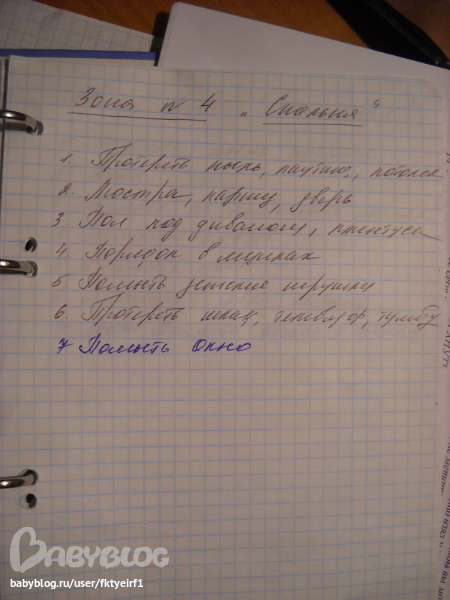 Зона № 4 „Спальня"
1. Протереть пыль, паутину, потолок
2. Люстра, карниз, дверь
3 Пол под диваном, плинтуса
4. Порядок в ящиках
5. Помыть детские игрушки
6. Протереть шкаф, телевизор, тумбу
7 Помыть окно
BABYBLOG
babyblog.ru/user/fktyeirf1